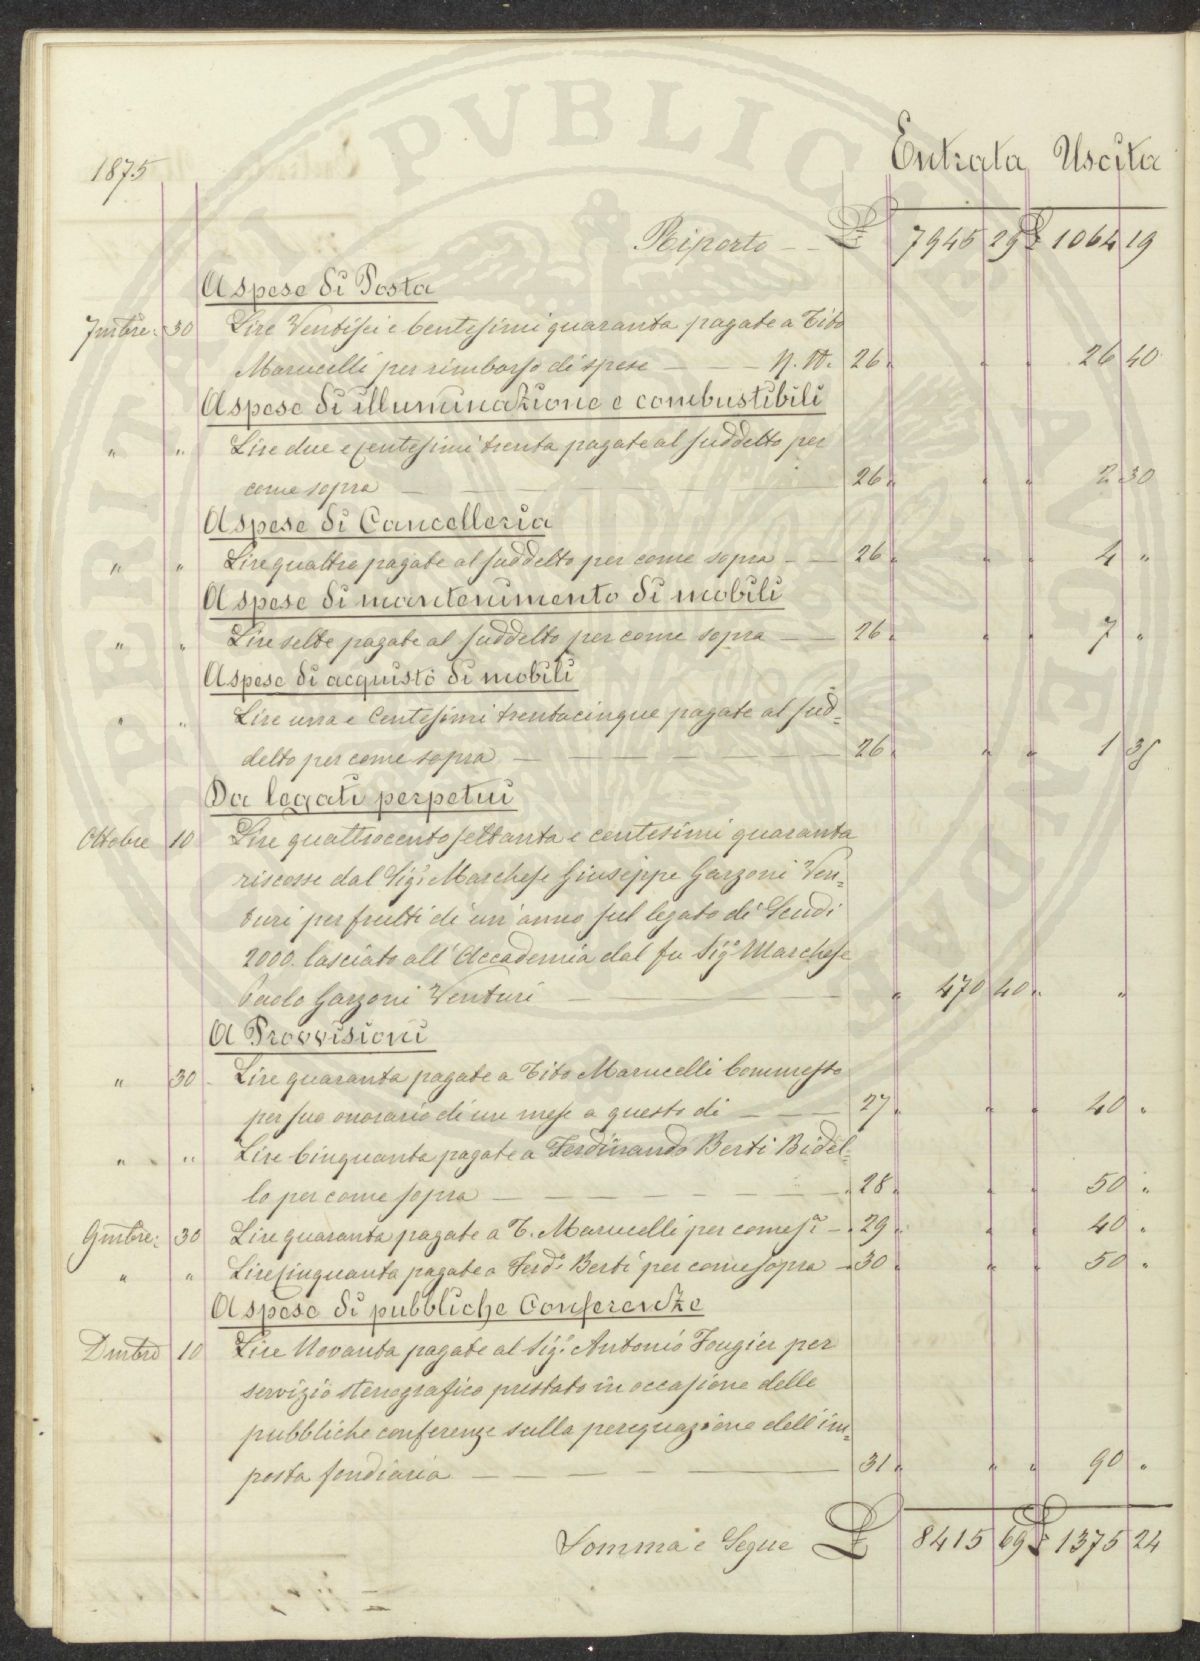 Entrata Uscita
1875
Riporto £ 7945 29 £ 1064 19
A spese di Posta
7mbre: 30 Lire Ventisei e Centesimi quaranta pagate a Tito
Marucelli per rimborso di spese N. M. 26 " " 26 40
A spese di illuminazione e combustibili
" " Lire due e centesimi trenta pagate al suddetto per
come sopra 26 " " " 2 30
A spese di Cancelleria
" " Lire quattro pagate al suddetto per come sopra 26 " " " 4 "
A spese di mantenimento di mobili
" " Lire sette pagate al suddetto per come sopra 26 " " " 7 "
A spese di acquisto di mobili
" " Lire una e Centesimi trentacinque pagate al sud=
detto per come sopra 26 " " " 1 35
Da legati perpetui
Ottobre 10 Lire quattrocentosettanta e centesimi quaranta
riscosse dal Sigr. Marchese Giuseppe Garzoni Ven=
turi per frutti di un'anno sul legato di Scudi
2000. lasciato all'Accademia dal fu Sigr. Marchese
Paolo Garzoni Venturi " 470 40 " "
A Provvisioni
" 30 Lire quaranta pagate a Tito Marucelli Commesso
per suo onorario di un mese a questo dì 27 " " " 40 "
" " Lire Cinquanta pagate a Ferdinando Berti Bidel=
lo per come sopra 28 " " " 50 "
9mbre: 30 Lire quaranta pagate a T. Marucelli per come sa. 29 " " " 40 "
" " Lire Cinquanta pagate a Ferdo. Berti per come sopra 30 " " " 50 "
A spese di pubbliche Conferenze
Dmbre 10 Lire Novanta pagate al Sigr. Antonio Fougier per
servizio stenografico prestato in occasione delle
pubbliche conferenze sulla perequazione dell'im=
posta fondiaria 31 " " " 90 "
Somma e Segue £ 8415 69 £ 1375 24